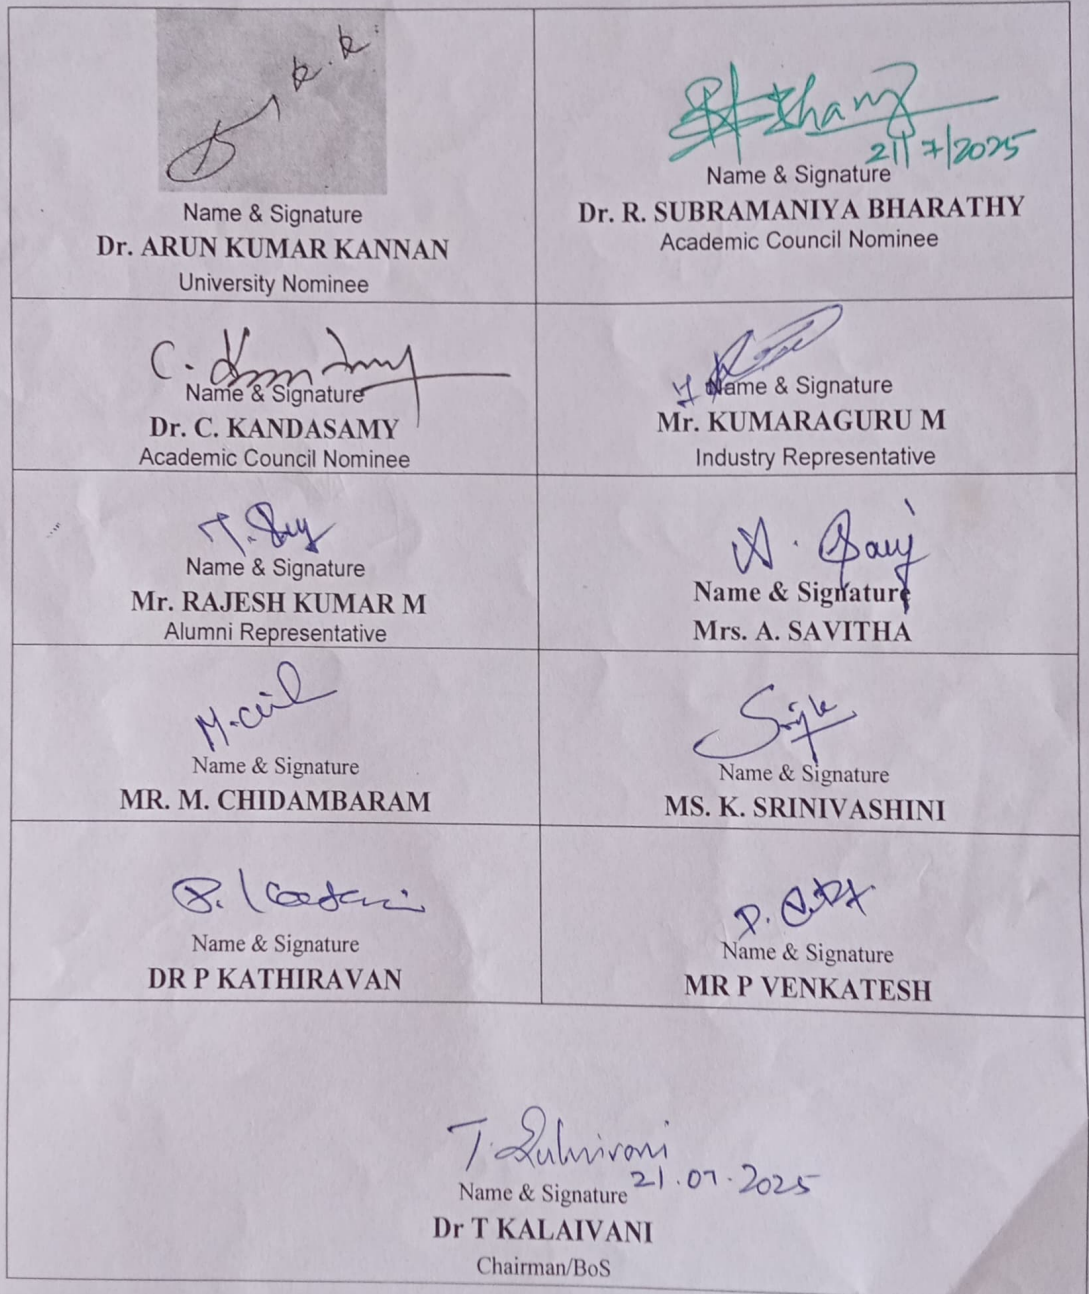 Name & Signature
Dr. ARUN KUMAR KANNAN
University Nominee
21/7/2025
Name & Signature
Dr. R. SUBRAMANIYA BHARATHY
Academic Council Nominee
Name & Signature
Dr. C. KANDASAMY
Academic Council Nominee
Name & Signature
Mr. KUMARAGURU M
Industry Representative
Name & Signature
Mr. RAJESH KUMAR M
Alumni Representative
Name & Signature
Mrs. A. SAVITHA
Name & Signature
MR. M. CHIDAMBARAM
Name & Signature
MS. K. SRINIVASHINI
Name & Signature
DR P KATHIRAVAN
Name & Signature
MR P VENKATESH
21.07.2025
Name & Signature
Dr T KALAIVANI
Chairman/BoS